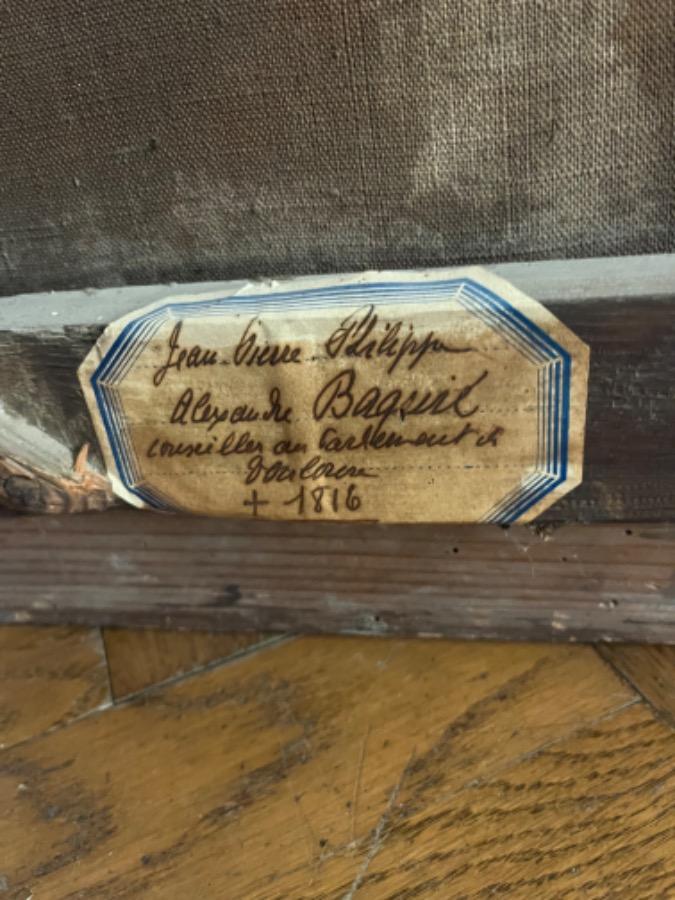 Jean-Pierre Philippe
Alexandre Baguirl
conseiller au Parlement de
Toulouse
+ 1816